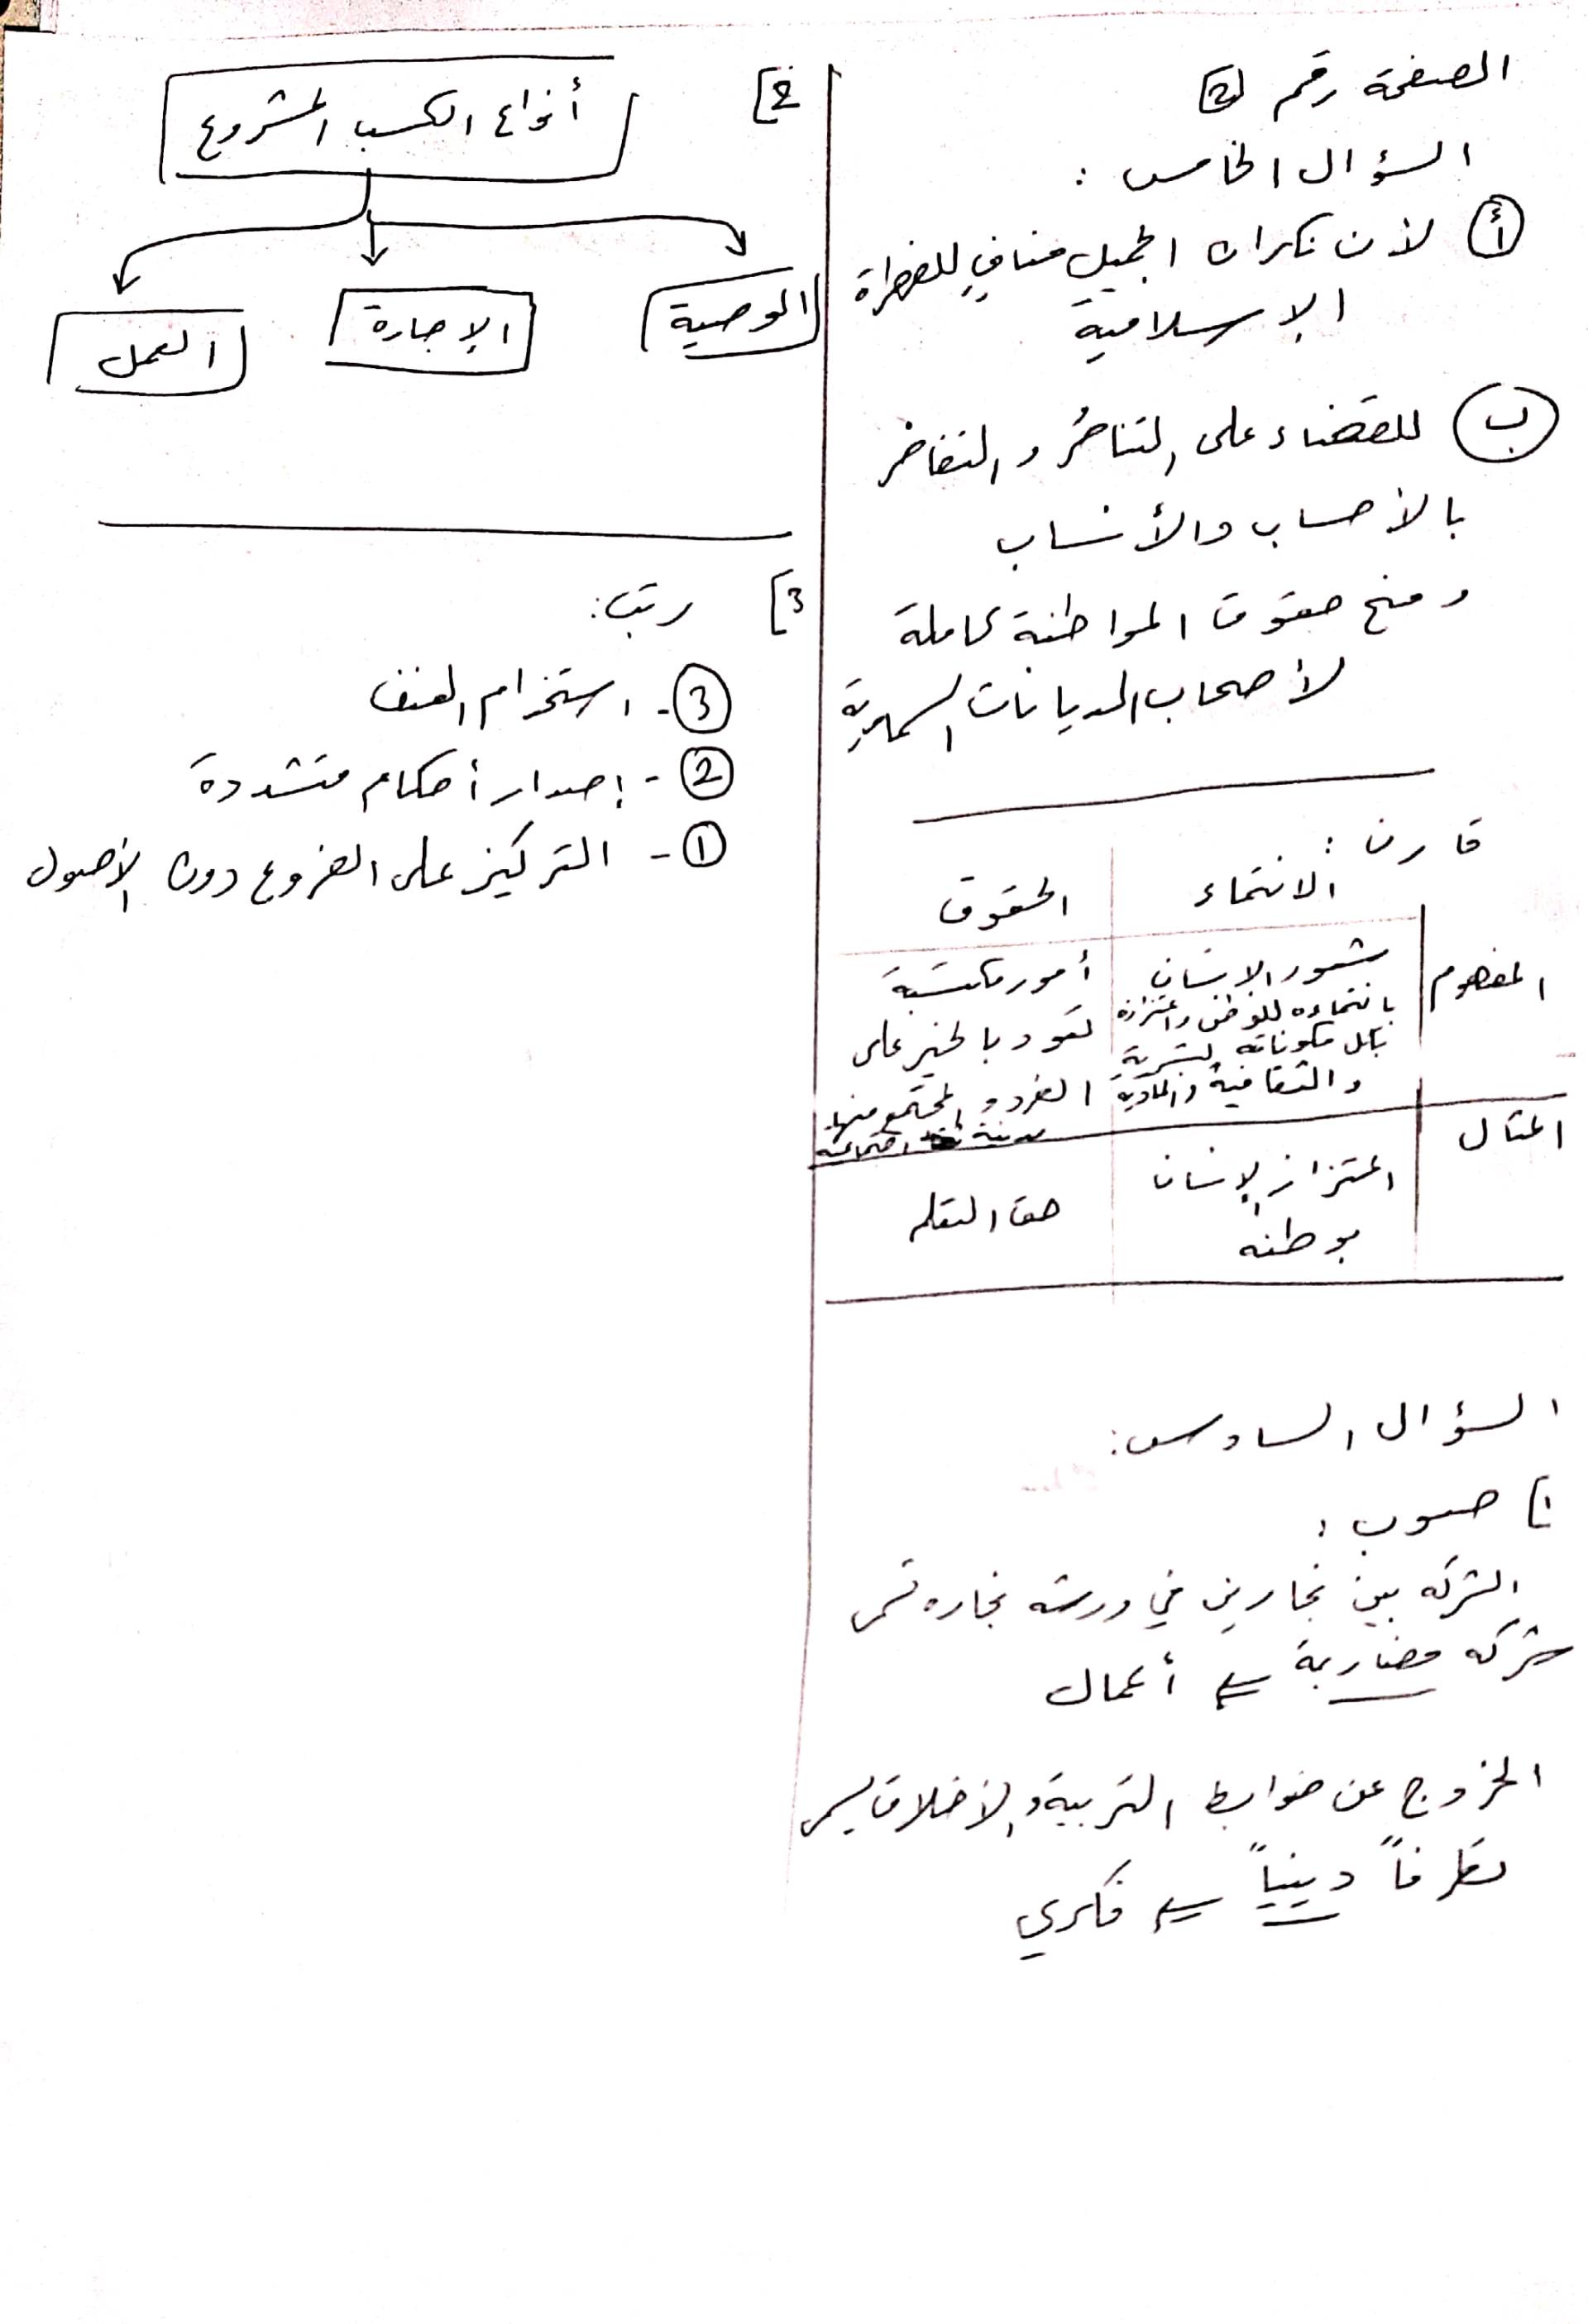 الصفحة رقم 2
السؤال الخامس :
أ لأن نكران الجميل منافٍ للفطرة
الإسلامية
ب للقضاء على التناحر والتفاخر
بالأحساب والأنساب
ومنح حقوق المواطنة كاملة
لأصحاب الديانات السماوية
قارن :
الانتماء الحقوق
المفهوم
شعور الإنسان
بانتماءه للوطن واعتزازه
بكل مكوناته البشرية
والثقافية والمادية
أمور مكتسبة
تعود بالخير على
الفرد والمجتمع منها
مدنية اجتماعية
المثال
اعتزاز الإنسان
بوطنه
حق التعلم
السؤال السادس:
1] صوب :
الشركه بين نجارين في ورشه نجاره تسمى
شركه مضاربة ⇐ أعمال
الخروج عن ضوابط التربية والأخلاق يسمى
تطرفاً دينياً ⇐ فكري
2] أنواع الكسب المشروع
الوصية الإجارة العمل
3] رتب:
3 - استخدام العنف
2 - إصدار أحكام متشددة
1 - التركيز على الفروع دون الأصول